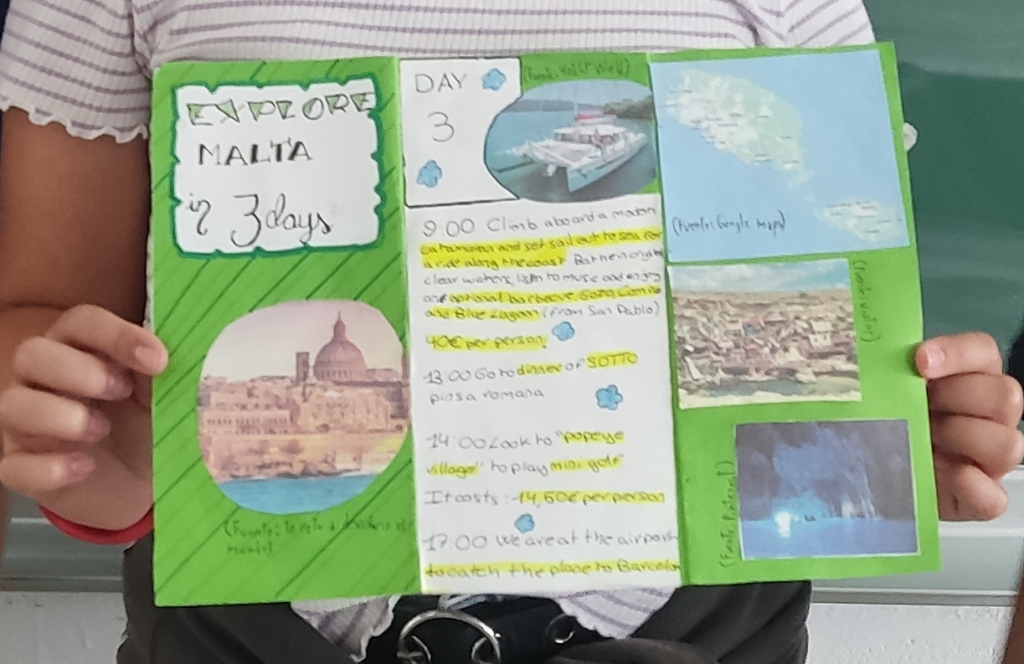 EXPLORE
MALTA
in 3 days
(Fuente: te reto a descubrir el
mundo)
DAY
3
(Fuente: Yacht World)
9:00 Climb aboard a modern
catamaran and set sail out to sea for
a ride along the coast. Bathe in crystal
clear waters, listen to music and enjoy
an optional barbecue. Gozo, Comino
and Blue Lagoon (from San Pablo)
40€ per person.
13:00 Go to dinner of SOTTO
pinsa romana
14:00 Look to "popeye
village" to play mini golf
It costs: 14,50€ per person
17:00 We are at the airport
to catch the plane to Barcelon
(Fuente: Google maps)
(Fuente: viator)
(Fuente: Pinterest)